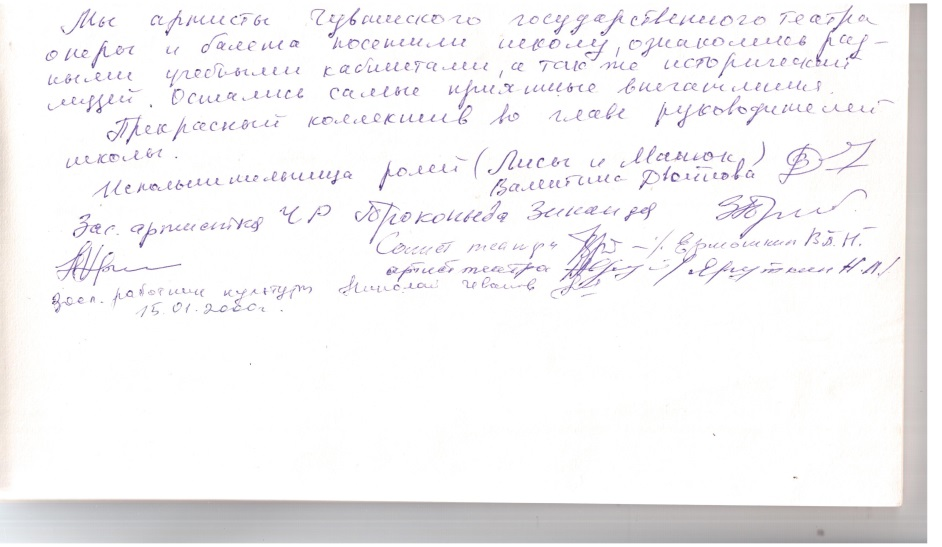 Мы артисты Чувашского государственного театра
оперы и балета посетили школу, ознакомись раз-
ными учебными кабинетами, а так же исторический
музей. Остались самые приятные впечатления.
Прекрасный коллектив во главе руководителей
школы.
Исполнительница ролей (Лисы и Манюк)
Валентина
Зас. артистка ЧР Прокопьева Зинаида
Солист театра Ермошкин В.П.
артист театра Яруткин Н.М.
Засл. работник культуры Николай
15.01.2000г.